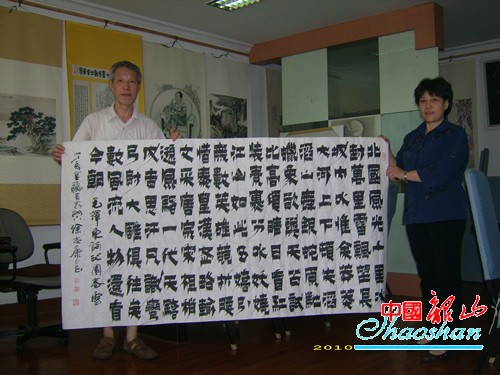 北國風光千里冰
封萬里雪飄望長
城內外惟餘莽莽
大河上下頓失滔
滔山舞銀蛇原馳
蠟象欲與天公試
比高須晴日看紅
裝素裹分外妖嬈
江山如此多嬌引
無數英雄競折腰
惜秦皇漢武略輸
文采唐宗宋祖稍
遜風騷一代天驕
成吉思汗只識彎
弓射大雕俱往矣
數風流人物還看
今朝 毛澤東詞沁園春雪
中國韶山
Shaoshan
2010